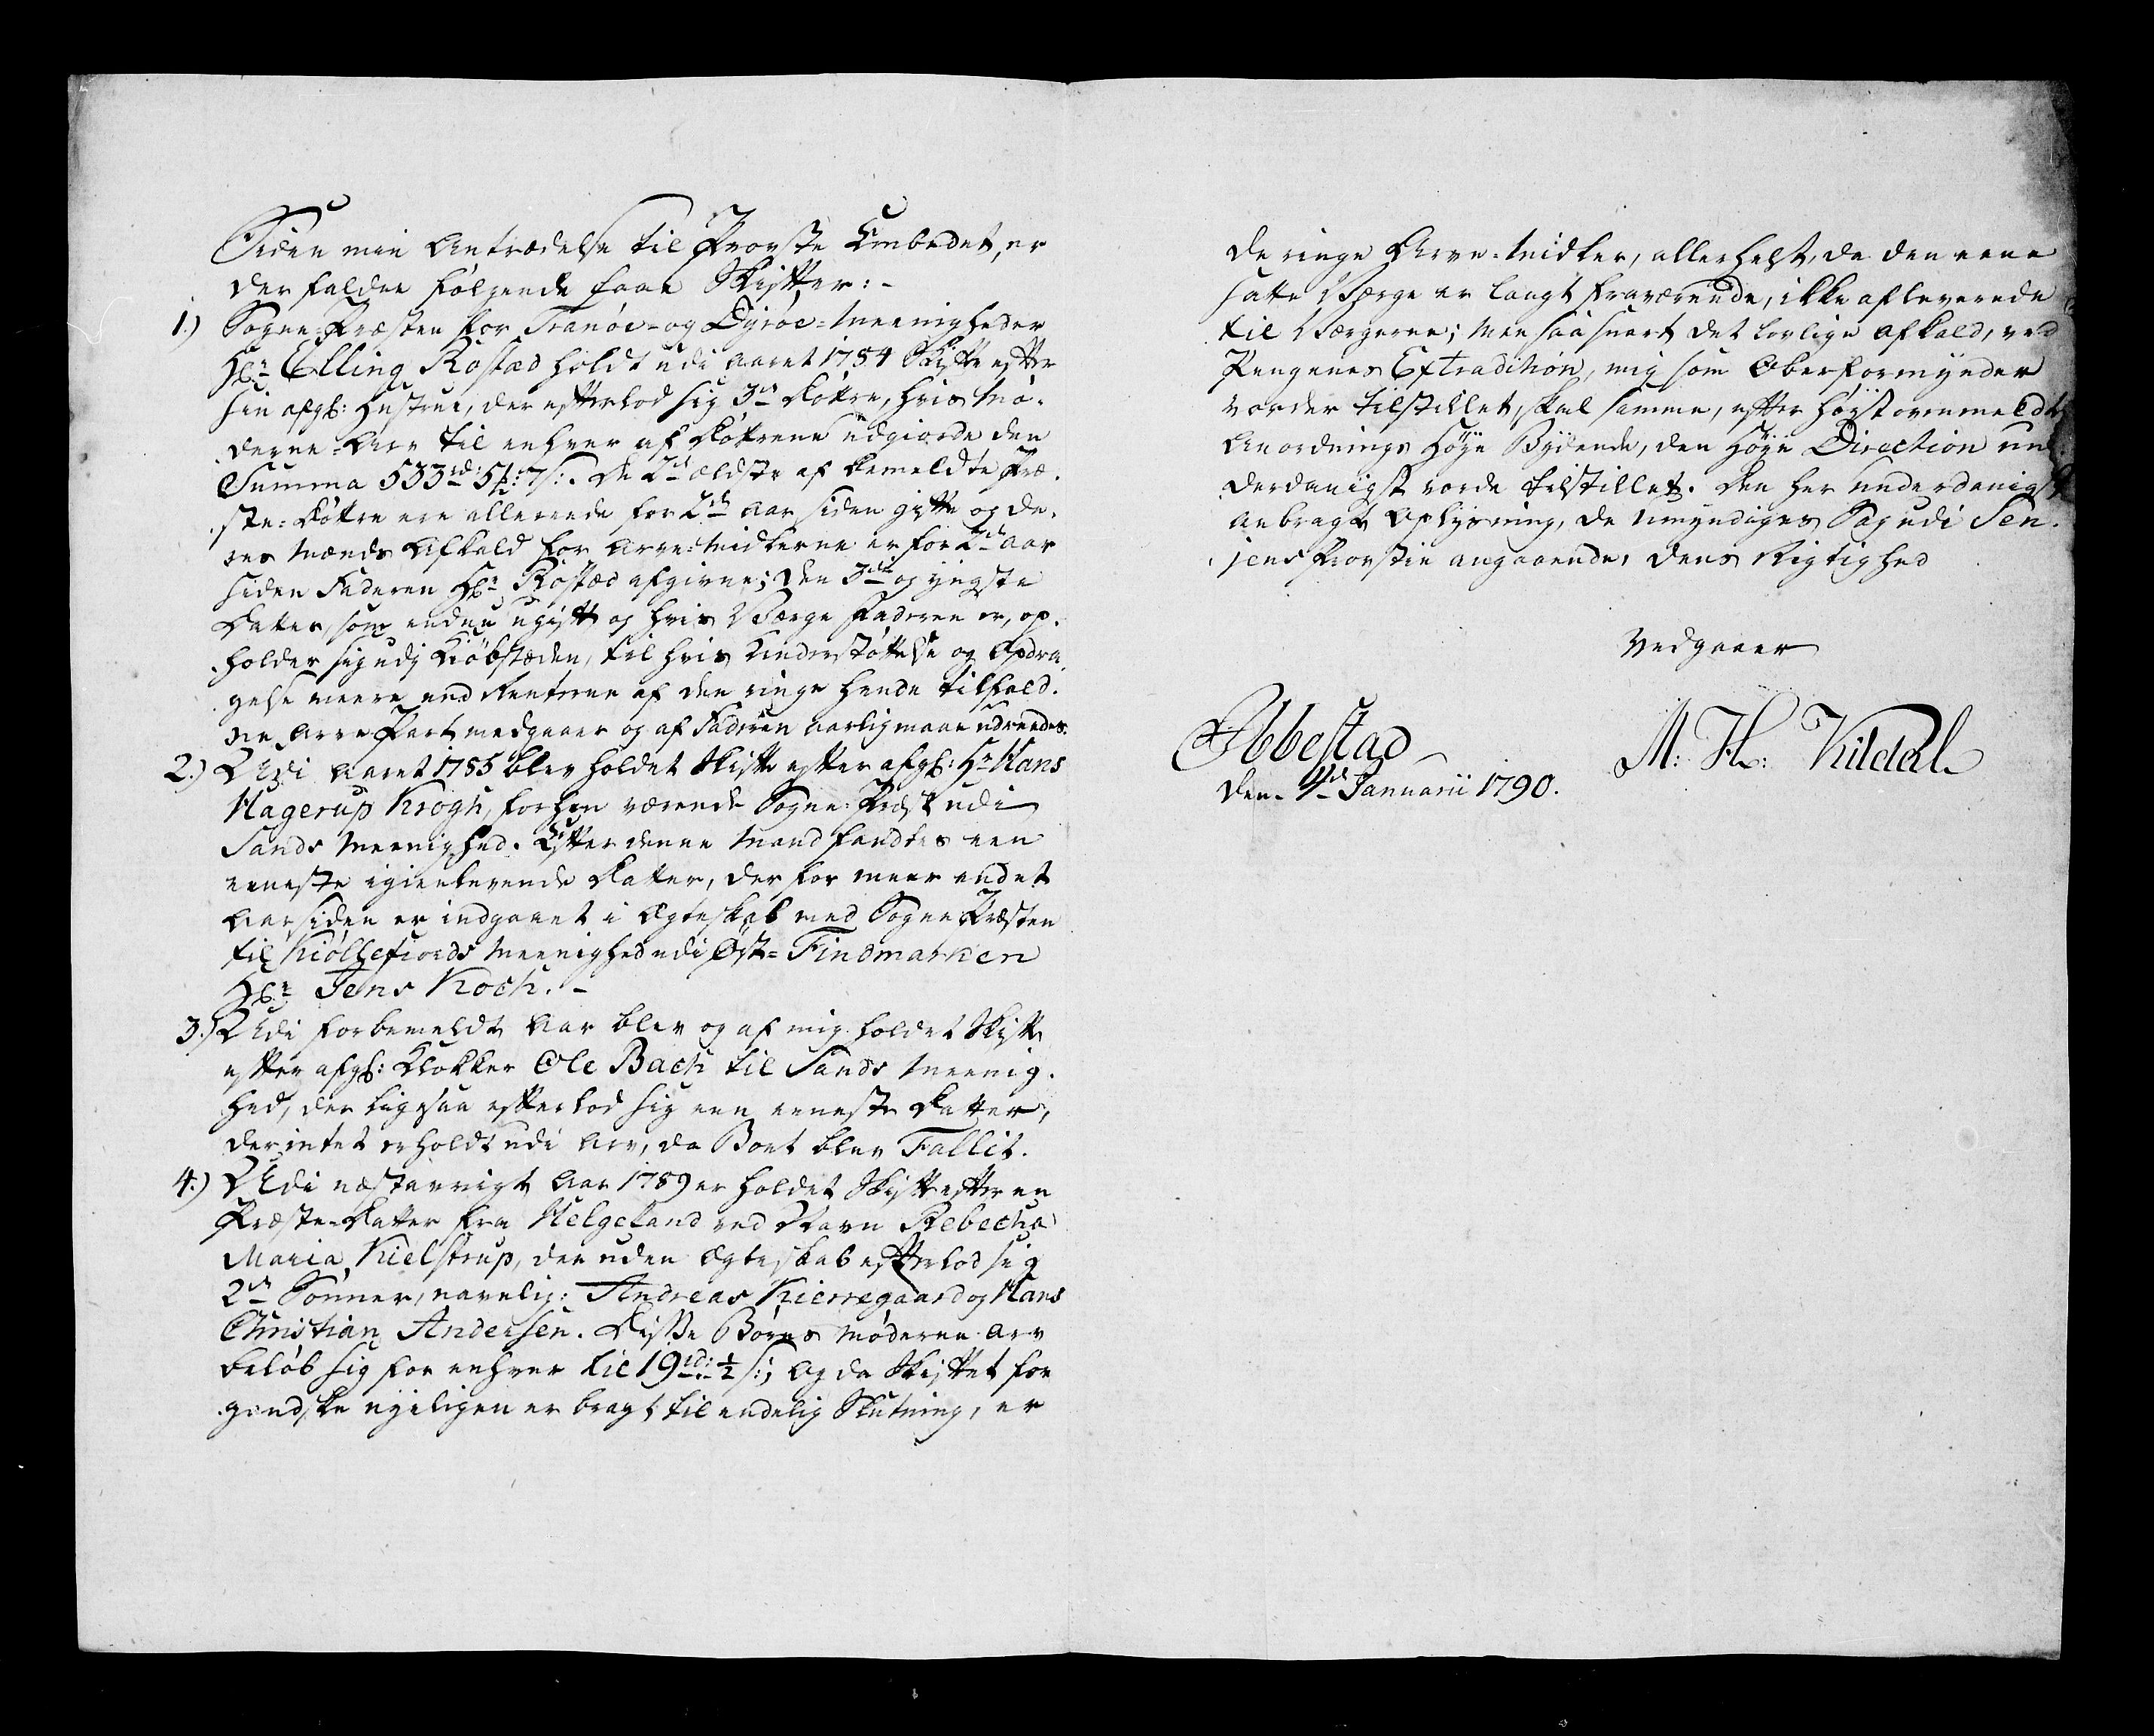 Siden min Antrædelse til Provste Embedet, er
der falden følgende faae Skifter:-
1.) Sogne-Præsten for Tranöe- og Dyröe-Meenigheder
Hr Elling Rostad holdt udi Aaret 1784 Skifte efter
sin afg: Hustrue, der efterlod sig 3de Døttre, hvis Mö-
derne-Arv til enhver af Døttrene udgiorde den
Summa 533rd: 5: 7s:. De 2de ældste af bemeldte Præ-
ste-Døttre ere allerede for 2de Aar siden gifte og de-
res Mænds Afkald for Arve-Midlerne er for 2de Aar
siden Faderen Hr Rostad afgivne; den 3die og yngste
Datter, som endnu ugift og hvis Værge Faderen er, op-
holder sig udj Kiöbstæden, til hvis Understöttelse og Opdra-
gelse meere end Renterne af den ringe hende tilfald-
ne Arve Part medgaaer og af Faderen aarlig maae udreedes.
2.) Udi Aaret 1785 blev holdet Skifte efter afg: Hr Hans
Hagerup Krogh, forhen værende Sogne-Præst udi
Sands Meenighed. Efter denne Mand fandtes een
eeneste igienlevende Datter, der for meer end et
Aar siden er indgaaet i Ægteskab med Sogne Præsten
til Kiöllefiords Meenighed udi Öst-Findmarken
Hr Jens Koch.-
3.) Udi forbemeldte Aar blev og af mig holdet Skifte
efter afg: Klokker Ole Bach til Sands Meenig-
hed, der ligesaa efterlod sig een eeneste Datter,
der intet erholdt udi Arv, da Boet blev Fallit.
4.) Udi næstavvigte Aar 1789 er holdet Skifte efter en
Præste-Datter fra Helgeland ved Navn Rebecha
Maria Kielstrup, der uden Ægteskab efterlod sig
2de Sönner, navnlig: Andreas Kierregaard og Hans
Christian Andersen. Disse Börns Möderne Arv
belöb sig for enhver til 19rd: ½ s:; og da Skiftet for
gandske nyeligen er bragt til endelig Slutning, er
de ringe Arve-Midler, allerhelst, da den eene
satte Værge er langt fraværende, ikke afleverede
til Værgerne; Men saasnart det lovlige Afkald, ved
Pengenes Extradition, mig som Overformynder
vorder tilstillet, skal samme, efter höjst ovenmeldte
Anordnings Höye Bydende, den Höye Direction un-
derdanigst vorde tilstillet. Den her underdanigst
anbragte Oplysning, de Umyndiges Sag udi Sen-
jens Provstie angaaende, dens Rigtighed
Vedgaaer
Ibbestad M: H: Kildal
den 4de Januarii 1790.